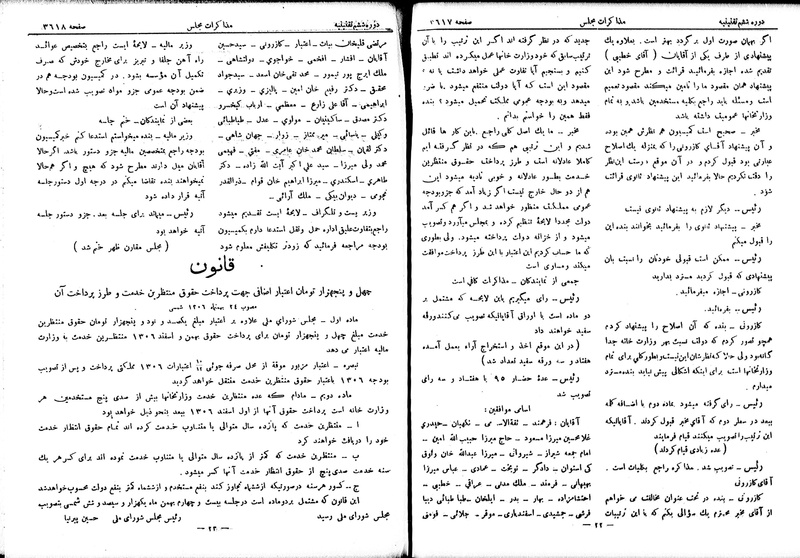 دوره ششم تقنینیه
مذاکرات مجلس
صفحه ۳۶۱۷
اگر بهمان صورت اول برگردد بهتر است. بعلاوه یک
پیشنهادی از طرف یکی از آقایان (آقای خطیبی)
تقدیم شده اجازه بفرمائید قرائت و مطرح شود این
پیشنهاد همان مقصود ما را تامین میکند مقصود تعمیم
است و مسئله باید راجع بکلیه مستخدمین باشد و به تمام
وزارتخانها عمومیت داشته باشد
مخبر – صحیح است کمیسیون هم نظرش همین بوده
و آن پیشنهاد آقای کازرونی را که بمنزله یک اصلاح
عبارتی بود قبول کردم و در آن موقع درست این نظر
را دقت نکردم حالا بفرمائید این پیشنهاد ثانوی قرائت
شود.
رئیس – دیگر لازم به پیشنهاد ثانوی نیست
مخبر – پیشنهاد ثانوی را بفرمائید بخوانند بنده این
را قبول میکنم
رئیس – ممکن است قبولی خودتان را نسبت بآن
پیشنهادی که قبول کردید مسترد بدارید
کازرونی – اجازه میفرمائید.
رئیس – بفرمائید.
کازرونی – بنده که آن اصلاح را پیشنهاد کردم
همچو تصور کردم که دولت نسبت بهر وزارت خانه جدا
گانه
وزارتخانها است برای اینکه اشکالی پیش نیاید بنده مسترد
میدارم.
رئیس – رای گرفته میشود بماده دوم با اضافه کلمه
ببعد در سطر دوم که آقای مخبر قبول کردند. آقایانیکه
این ترتیب را تصویب میکنند قیام فرمایند
(عده زیادی قیام کردند)
رئیس – تصویب شد. مذاکره راجع بکلیات است.
آقای کازرونی
کازرونی – بنده در تحت عنوان مخالفت می خواهم
از آقای مخبر محترم یک سؤالی بکنم که با این ترتیبات
جدید که در نظر گرفته اند اگر این ترتیب را با آن
ترتیب سابق که خود وزارت خانها عمل میکردند تطبیق
کنیم و بسنجیم آیا تفاوت عملی خواهد داشت یا نه؟
مقصود این است که آیا دولت منتفع میشود یا ضرر
میدهد و به بودجه عمومی مملکت تحمیل میشود؟ بنده
فقط همین را خواستم بدانم.
مخبر – ما یک اصل کلی راجع باین کار ها قائل
شدیم و این ترتیبی هم که در نظر گرفته ایم
کاملا عادلانه است و طرز پرداخت حقوق منتظرین
خدمت بطور عادلانه و خوبی تأدیه میشود این
هم از دو حال خارج نیست اگر زیاد آمد که جزو بودجه
عمومی مملکت منظور خواهد شد و اگر هم کسر آمد
دولت مجددا لایحه تنظیم کرده و بمجلس میآورد و تصویب
میشود و از خزانه دولت پرداخته میشود. ولی بطوری
که ما حساب کردیم این اعتبار با این طرز پرداخت موافقت
میکند و مساوی است
جمعی از نمایندگان – مذاکرات کافی است
رئیس – رای میگیریم باین لایحه که مشتمل بر
دو ماده است با اوراق آقایانیکه تصویب می کنند ورقه
سفید خواهند داد
(در این موقع اخذ و استخراج آراء بعمل آمده
هفتاد و سه ورقه سفید تعداد شد)
رئیس – عدة حضار ۹۵ با هفتاد و سه رای
تصویب شد
اسامی موافقین:
آقایان: فرهمند – ثقة الاسلامی – نگهبان – حیدری
غلامحسین میرزا مسعود – حاج میرزا حبیب الله امین –
امام جمعه شیراز – شیروانی – میرزا عبدالله خان وثوق
کی استوان – دادگر – نوبخت – عمادی – عباس میرزا
بهبهانی – فرمند – ملک مدنی – عراقی – خطیبی –
احتشام زاده – بهار – بدر – ایلخان – طباطبائی دیبا
قرشی – جمشیدی – اسفندیاری – موقر – جلائی – فومنی
– ۲۲ –
دوره ششم تقنینیه
مذاکرات مجلس
صفحه ۳۶۱۸
مرتضی قلیخان بیات – اعتبار – کازرونی – سید حسین
آقایان – افشار – افخمی – خواجوی – دولتشاهی –
ملک ایرج پور تیمور – محمد تقی خان اسعد – سید جواد
محقق – دکتر رفیع خان امین – پالیزی – وزیری –
ابراهیمی – آقا علی زارع – معظمی – ارباب کیخسرو
دکتر مصدق – ساکینیان – مولوی – عدل – طباطبائی
وکیلی – یاسائی – میرممتاز – زوار – جهان شاهی –
دکتر لقمان – سلطان محمد خان عامری – مفتی – فهیمی
محمد ولی میرزا – سید علی اکبر آیت الله زاده – دکتر
طاهری – اسکندری – میرزا ابراهیم خان قوام – ذوالقدر
نجومی – دیوان بیگی – ملک آرائی –
وزیر پست و تلگراف – لایحة ایست تقدیم میشود
راجع بتفاوت علیق اداره حمل و نقل استدعا دارم بکمیسیون
بودجه مراجعه فرمائید که زودتر تکلیفش معلوم شود
وزیر مالیه – لایحة ایست راجع بتخصیص عوائد
راه آهن جلفا و تبریز برای مخارج خودش که صرف
تکمیل آن مؤسسه بشود. در کمیسیون بودجه هم در
ضمن بودجه عمومی جزو مواد تصویب شده است و حالا
پیشنهاد آن است
بعضی از نمایندگان – ختم جلسه
وزیر مالیه – بنده میخواستم استدعا کنم خبر کمیسیون
بودجه راجع بمتخصصین مالیه جزو دستور باشد. اگر حالا
آقایان میل دارند مطرح شود که هیچ و اگر هم حالا
نمیخواهند بنده تقاضا میکنم در درجه اول دستور جلسه
آتیه قرار داده شود
رئیس – میماند برای جلسه بعد. جزو دستور جلسه
آتیه خواهد بود
(مجلس مقارن ظهر ختم شد)
قانون
چهل و پنجهزار تومان اعتبار اضافی جهت پرداخت حقوق منتظرین خدمت و طرز پرداخت آن
مصوب ۲۴ بهمنماه ۱۳۰۶ شمسی
ماده اول – مجلس شورای ملی علاوه بر اعتبار مبلغ یکصد و نود و پنجهزار تومان حقوق منتظرین
خدمت مبلغ چهل و پنجهزار تومان برای پرداخت حقوق بهمن و اسفند ۱۳۰۶ منتظرین خدمت به وزارت
مالیه اعتبار می دهد
تبصره – اعتبار مزبور فوقه از محل صرفه جوئی اعتبارات ۱۳۰۶ مملکتی پرداخت و پس از تصویب
بودجه ۱۳۰۶ باعتبار حقوق منتظرین خدمت منتقل خواهد گردید
ماده دوم – مادام که عده منتظرین خدمت وزارتخانها بیش از صدی پنج مستخدمین هر
وزارت خانه است پرداخت حقوق آنها از اول اسفند ۱۳۰۶ ببعد بنحو ذیل خواهد بود
ا – منتظرین خدمت که پانزده سال متوالی یا متناوب خدمت کرده اند تمام حقوق انتظار خدمت
خود را دریافت خواهند کرد
ب – منتظرین خدمت که کمتر از پانزده سال متوالی یا متناوب خدمت نموده اند برای کسر هر یک
سنه خدمت صدی پنج از حقوق انتظار خدمت آنها کسر میشود.
ج – کسور هر سنه در صورتیکه از ششماه تجاوز کند بنفع مستخدم و از ششماه کمتر بنفع دولت محسوب خواهد شد
این قانون که مشتمل بر دو ماده است در جلسه بیست و چهارم بهمن ماه یکهزار و سیصد و شش شمسی بتصویب
مجلس شورای ملی رسید
رئیس مجلس شورای ملی حسین پیرنیا
– ۲۳ –